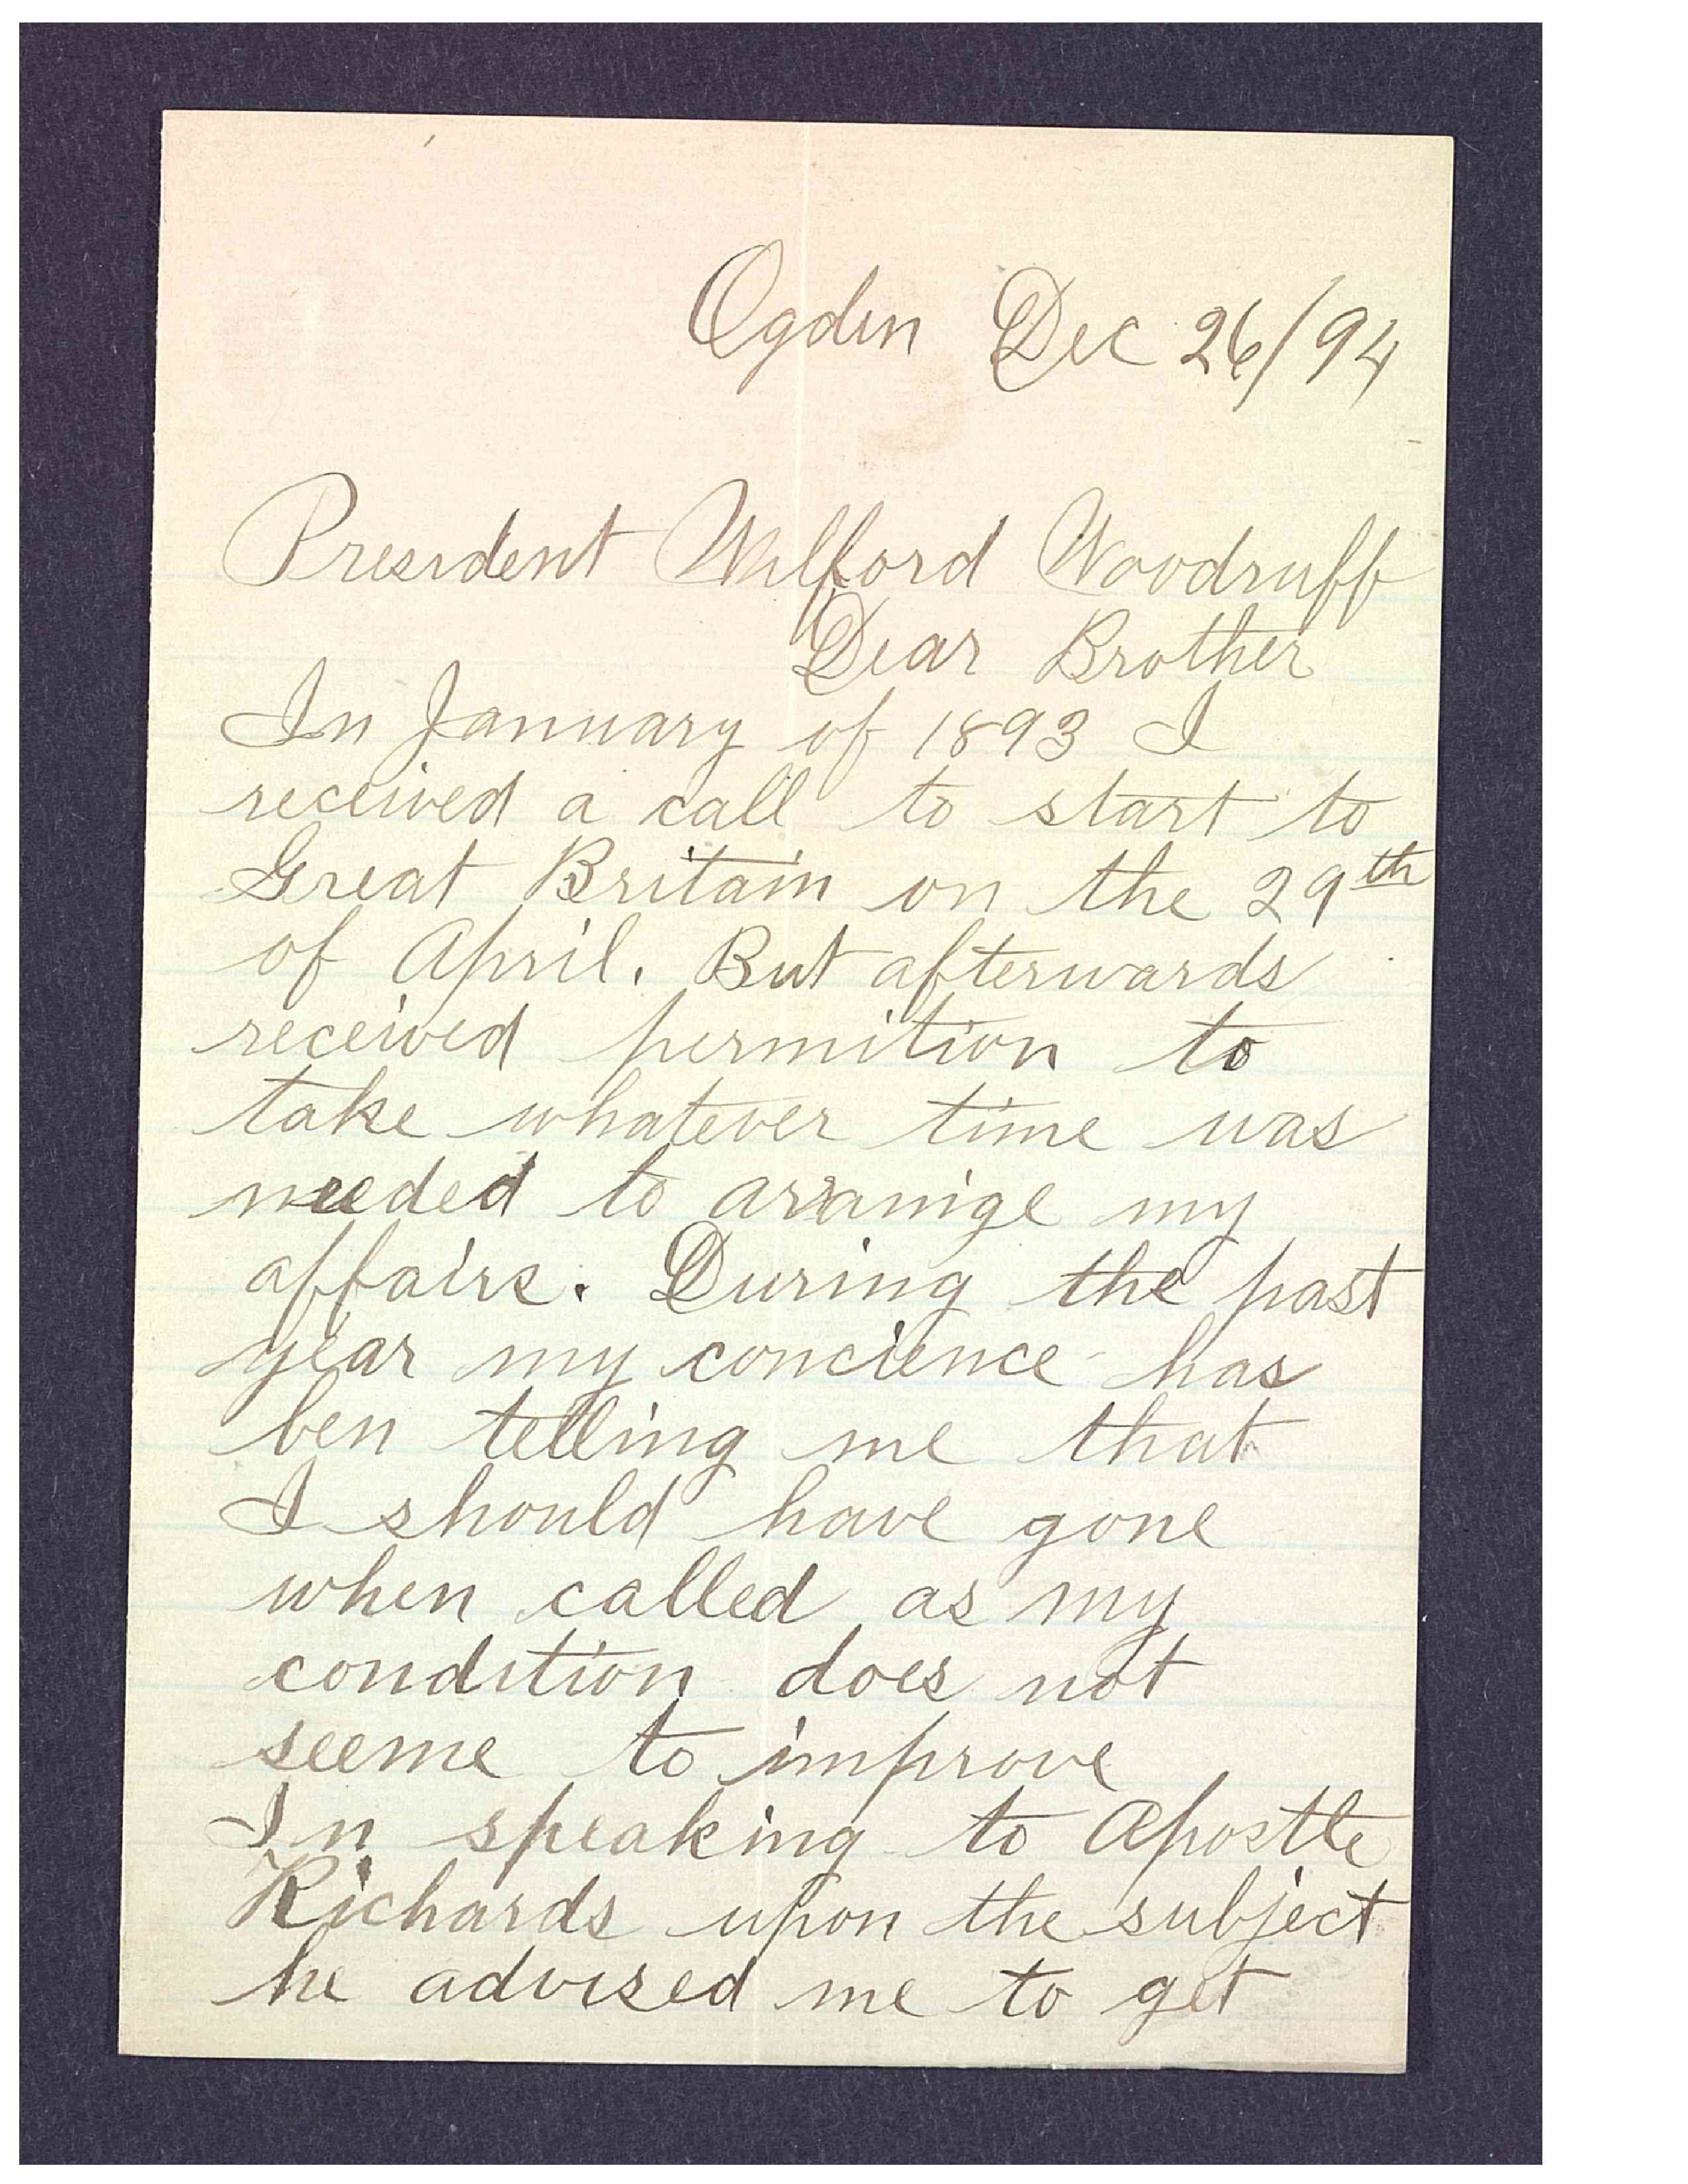 Ogden Dec 26/94
President Wilford Woodruff
Dear Brother
In January of 1893 I
received a call to start to
Great Britain on the 29th
of April. But afterwards
received permition to
take whatever time was
needed to arrainge my
affairs. During the past
year my concience has
ben telling me that
I should have gone
when called as my
condition does not
seeme to improve
In speaking to Apostle
Richards upon the subject
he advised me to get